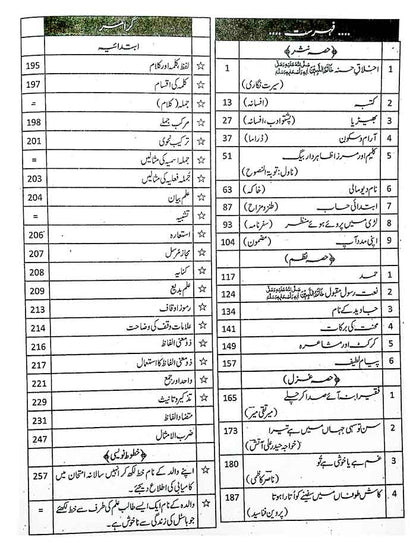 .... فہرست ....
﴿حصہ نثر﴾
1 اخلاقِ حسنہ ﷺ 1
(سیرت نگاری)
2 کتبہ (افسانہ) 13
3 بھیڑیا (پشتو ادب، افسانہ) 27
4 آرام و سکون (ڈراما) 37
5 کلیم اور مرزا ظاہردار بیگ 51
(ناول: توبۃ النصوح)
6 نام دیو مالی (خاکہ) 63
7 ابتدائی حساب (طنز و مزاح) 87
8 لڑی میں پروئے ہوئے منظر (سفرنامہ) 93
9 اپنی مدد آپ (مضمون) 104
﴿حصہ نظم﴾
1 حمد 117
2 نعت رسول مقبول ﷺ 124
3 جاوید کے نام 134
4 محنت کی برکات 141
5 کرکٹ اور مشاعرہ 149
6 پیامِ لطیف 157
﴿حصہ غزل﴾
1 فقیرانہ آئے صدا کر چلے 165
(میر تقی میر)
2 سن تو سہی جہاں میں ہے تیرا 173
(خواجہ حیدر علی آتش)
3 غم ہے یا خوشی ہے تُو 180
(ناصر کاظمی)
4 کاش طوفاں میں سفینے کو اُتارا ہوتا 187
(پروین فنا سید)
گرائمر
ابتدائیہ
☆ لفظ، کلمہ اور کلام 195
☆ کلمہ کی اقسام 197
☆ جملہ (کلام) =
☆ مرکب جملے 198
☆ ترکیب نحوی 201
☆ جملہ اسمیہ کی مثالیں =
☆ جملہ فعلیہ کی مثالیں 203
☆ علم بیان 204
☆ تشبیہ =
☆ استعارہ 206
☆ مجاز مرسل 207
☆ کنایہ 208
☆ علم بدیع 209
☆ رموز اوقاف 213
☆ علامات وقف کی وضاحت 214
☆ ذو معنی الفاظ 216
☆ ذو معنی الفاظ کا استعمال 217
☆ واحد اور جمع 221
☆ تذکیر و تانیث 229
☆ متضاد الفاظ 231
ضرب الامثال 247
﴿خطوط نویسی﴾
☆ اپنے والد کے نام خط لکھ کر انہیں سالانہ امتحان میں 257
کامیابی کی اطلاع دیجئے۔
☆ والدہ کے نام ایک ایسے طالب علم کی طرف سے خط لکھئے =
جو ہاسٹل کی زندگی سے ناخوش ہے۔